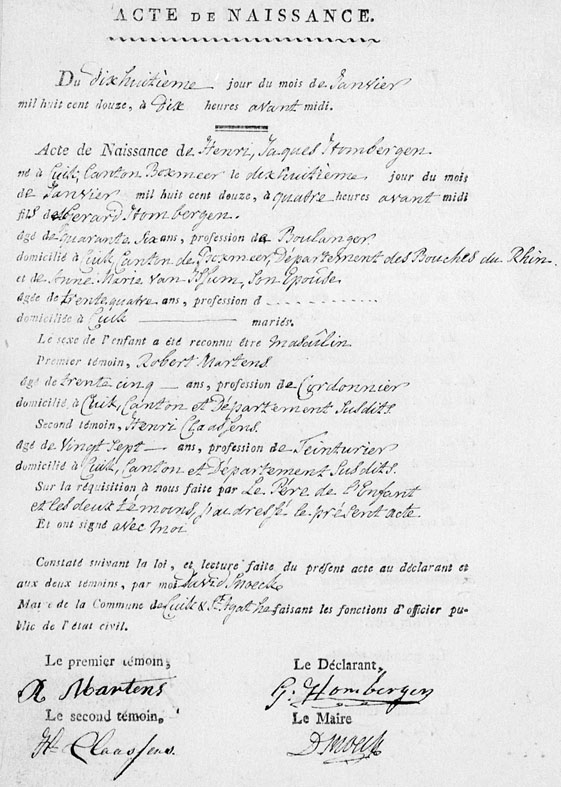 ACTE DE NAISSANCE.
Du dixhuitieme jour du mois de Janvier
mil huit cent douze, à dix heures avant midi.
Acte de Naissance de Henri, Jaques Hombergen
né à Cuik, Canton Boxmeer le dixhuitieme jour du mois
de Janvier mil huit cent douze, à quatre heures avant midi
fils de Gerard Hombergen.
âgé de quarante six ans, profession de Boulanger
domicilié à Cuik Canton de Boxmeer, Département des Bouches du Rhin.
et de Anne Marie van Ilsum, Son Epouse
âgée de trente quatre ans, profession d - - - - - - - - -
domiciliée à Cuik ——— mariés.
Le sexe de l'enfant a été reconnu être masculin
Premier témoin, Robert Martens
âgé de trente cinq — ans, profession de Cordonnier
domicilié à Cuik, Canton et Département Susdits
Second témoin, Henri Claassens.
âgé de vingt Sept — ans, profession de Teinturier
domicilié à Cuik, Canton et Département Susdits.
Sur la réquisition à nous faite par Le Pére de l'Enfant
et les deux témoins, j'ai dressé le présent acte
Et ont signé avec moi
Constaté suivant la loi, et lecture faite du présent acte au déclarant et
aux deux témoins, par moi David Snoeck
Maire de la Commune de Cuik & St. Agathe faisant les fonctions d'officier pu-
blic de l'état civil.
Le premier témoin,
Le Déclarant,
R Martens
G. Hombergen
Le second témoin,
Le Maire
Hk Claassens.
D Snoeck